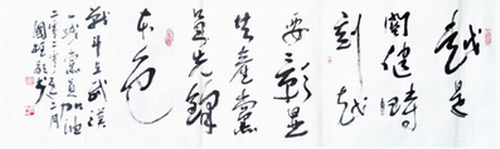 越是
關健時
刻越
要彰显
共產黨
員先鋒
本色
戰斗在武漢
一线黨員加油
二零二零年二月